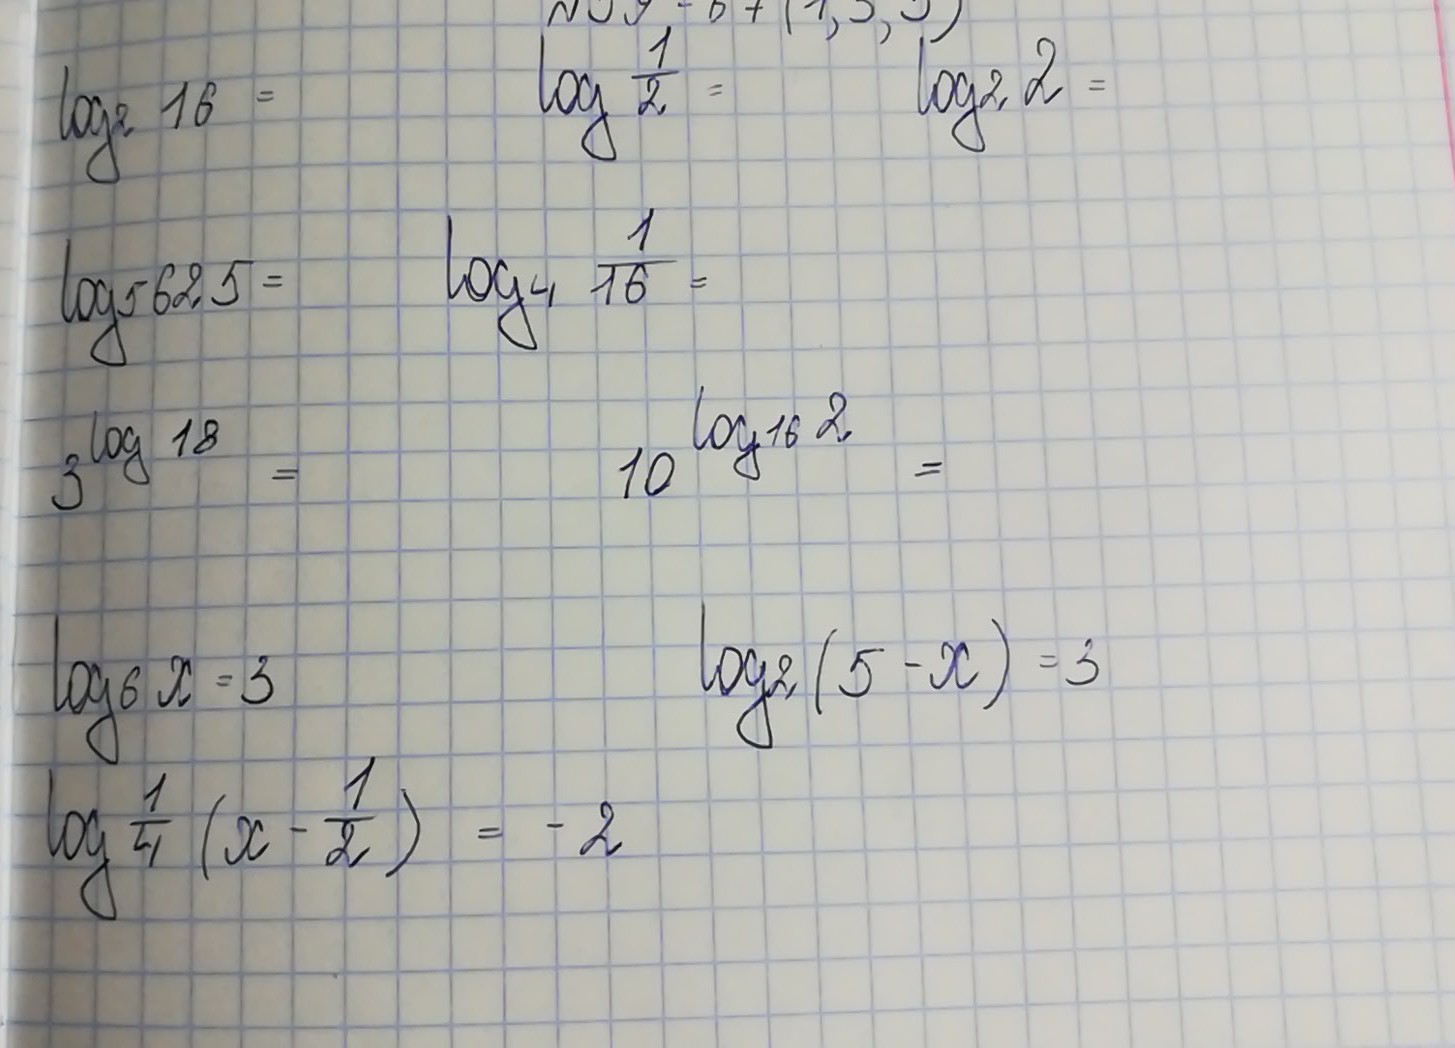 log₂ 16 = log 1/2 = log₂ 2 =
log₅ 625 = log₄ 1/16 =
3^(log 18) = 10^(log₁₆ 2) =
log₆ x = 3 log₂ (5 - x) = 3
log 1/4 (x - 1/2) = - 2